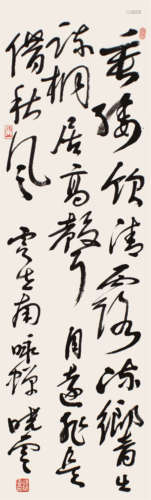 垂緌飲清露流響出
疏桐居高聲自遠非是
借秋風 虞世南詠蟬 曉雲